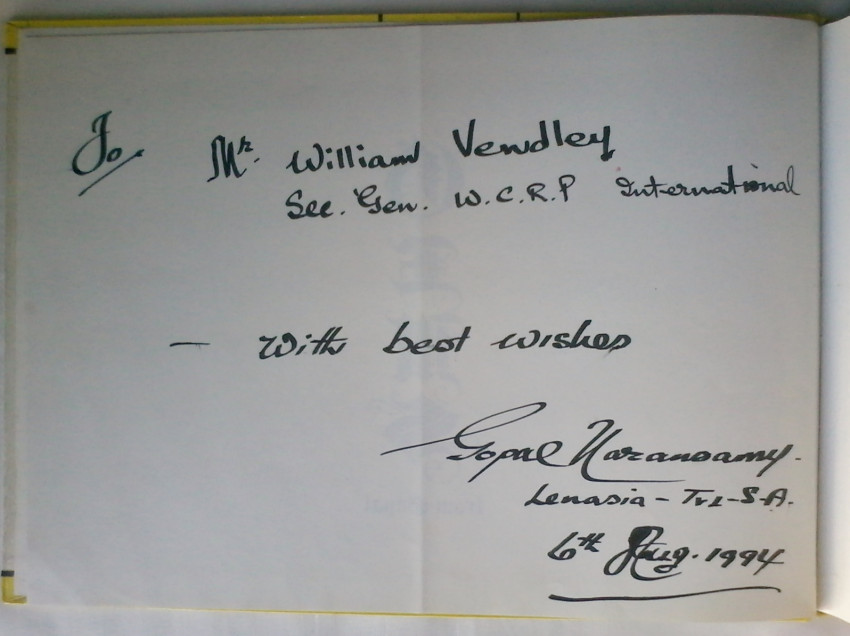 To, Mr. William Vendley
Sec. Gen. W.C.R.P International
— With best wishes
Gopal Naransamy.
Lenasia - Tvl - S.A.
6th Aug. 1994